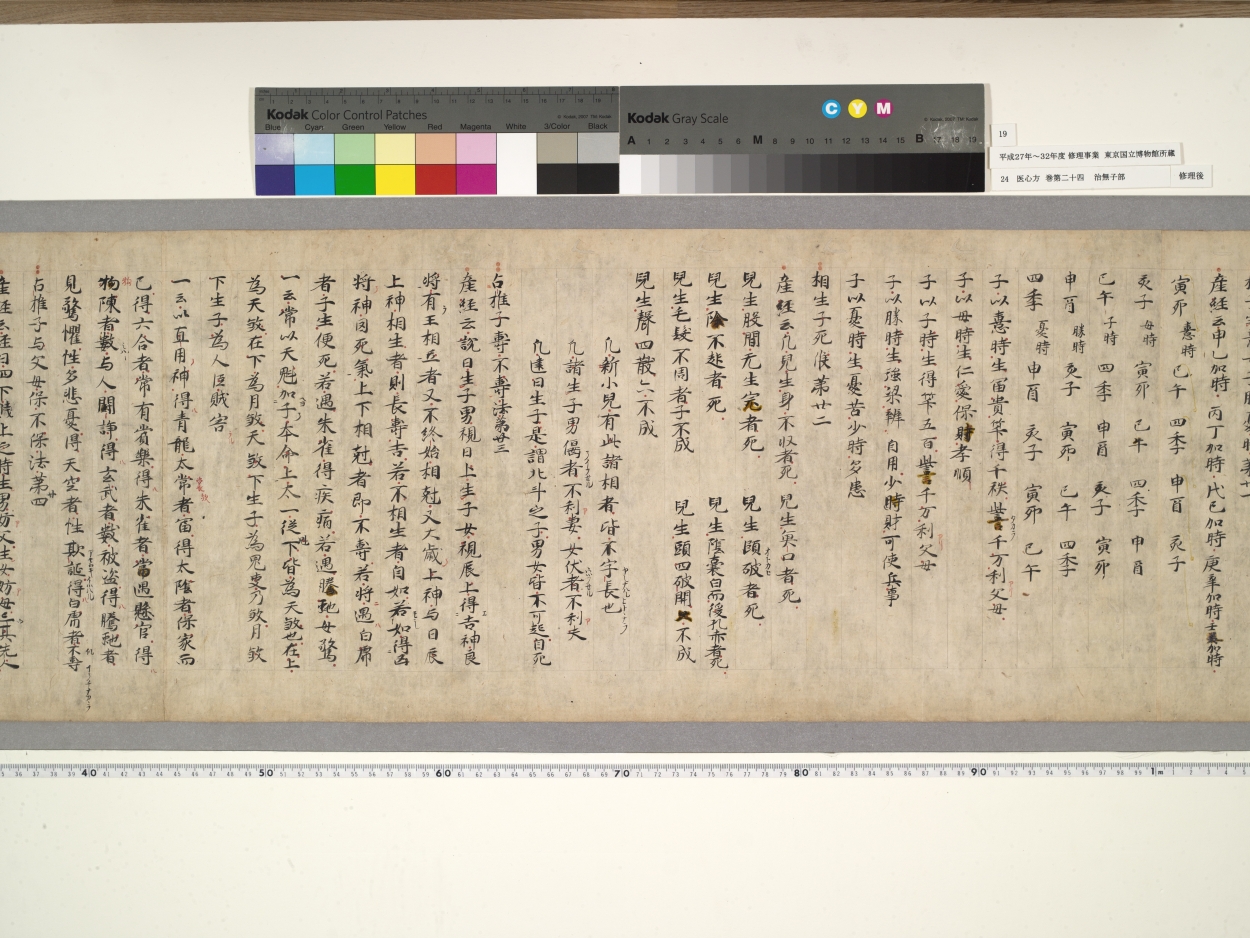 Kodak Color Control Patches
Blue Cyan Green Yellow Red Magenta White 3/Color Black
Kodak Gray Scale
C Y M
A 1 2 3 4 5 6 M 8 9 10 11 12 13 14 15 B 17 18 19
19
平成27年～32年度 修理事業 東京国立博物館所蔵
24 医心方 巻第二十四 治無子部
修理後
産経云申巳加時丙丁加時戊己加時庚辛加時壬癸加時
寅卯 悪時 巳午 四季 申酉 亥子
亥子 母時 寅卯 巳午 四季 申酉
巳午 子時 四季 申酉 亥子 寅卯
申酉 勝時 亥子 寅卯 巳午 四季
四季 憂時 申酉 亥子 寅卯 巳午
子以憙時生富貴筭得千秩訾千万利父母
子以母時生仁愛保財孝順
子以子時生得筭五百訾千万利父母
子以勝時生強梁 自用少時財可使兵事
子以憂時生憂苦少時多患
相生子死候第廿二
産経云凡兒生身不収者死 兒生魚口者死
兒生股間无生宍者死 兒生頭破者死
兒生陰不起者死 兒生陰囊白而後孔赤者死
兒生毛髮不周者子不成 兒生頭四破開 不成
兒生聲四散亦不成
凡新小兒有此諸相者皆不宇長也
凡諸生子男偃者不利妻女伏者不利夫
凡遠日生子是謂北斗之子男女皆不可起自死
占推子壽不壽法第廿三
産経云説曰生子男視日上生子女視辰上得吉神良
將有王相立者又不終始相剋又大歳上神与日辰
上神相生者則長壽吉若不相生者自如若如得凶
將神囚死氣上下相剋者即不壽若將遇白虎
者子生便死若遇朱雀得疾病若遇騰虵母驚
一云常以天魁加子本命上太一從下皆為天煞也在上
為天煞在下為月煞天煞下生子為鬼吏所煞月煞
下生子為人臣賊害
一云以直用神得青龍太常者富得太陰者保家而
已得六合者常有賞樂得朱雀者當遇懸官得
物陳者數与人鬪諍得玄武者數被盜得騰虵者
見驚懼性多悲憂得天空者性欺誕得白虎者不壽
占推子与父母保不保法第廿四
40 50 60 70 80 90 1m